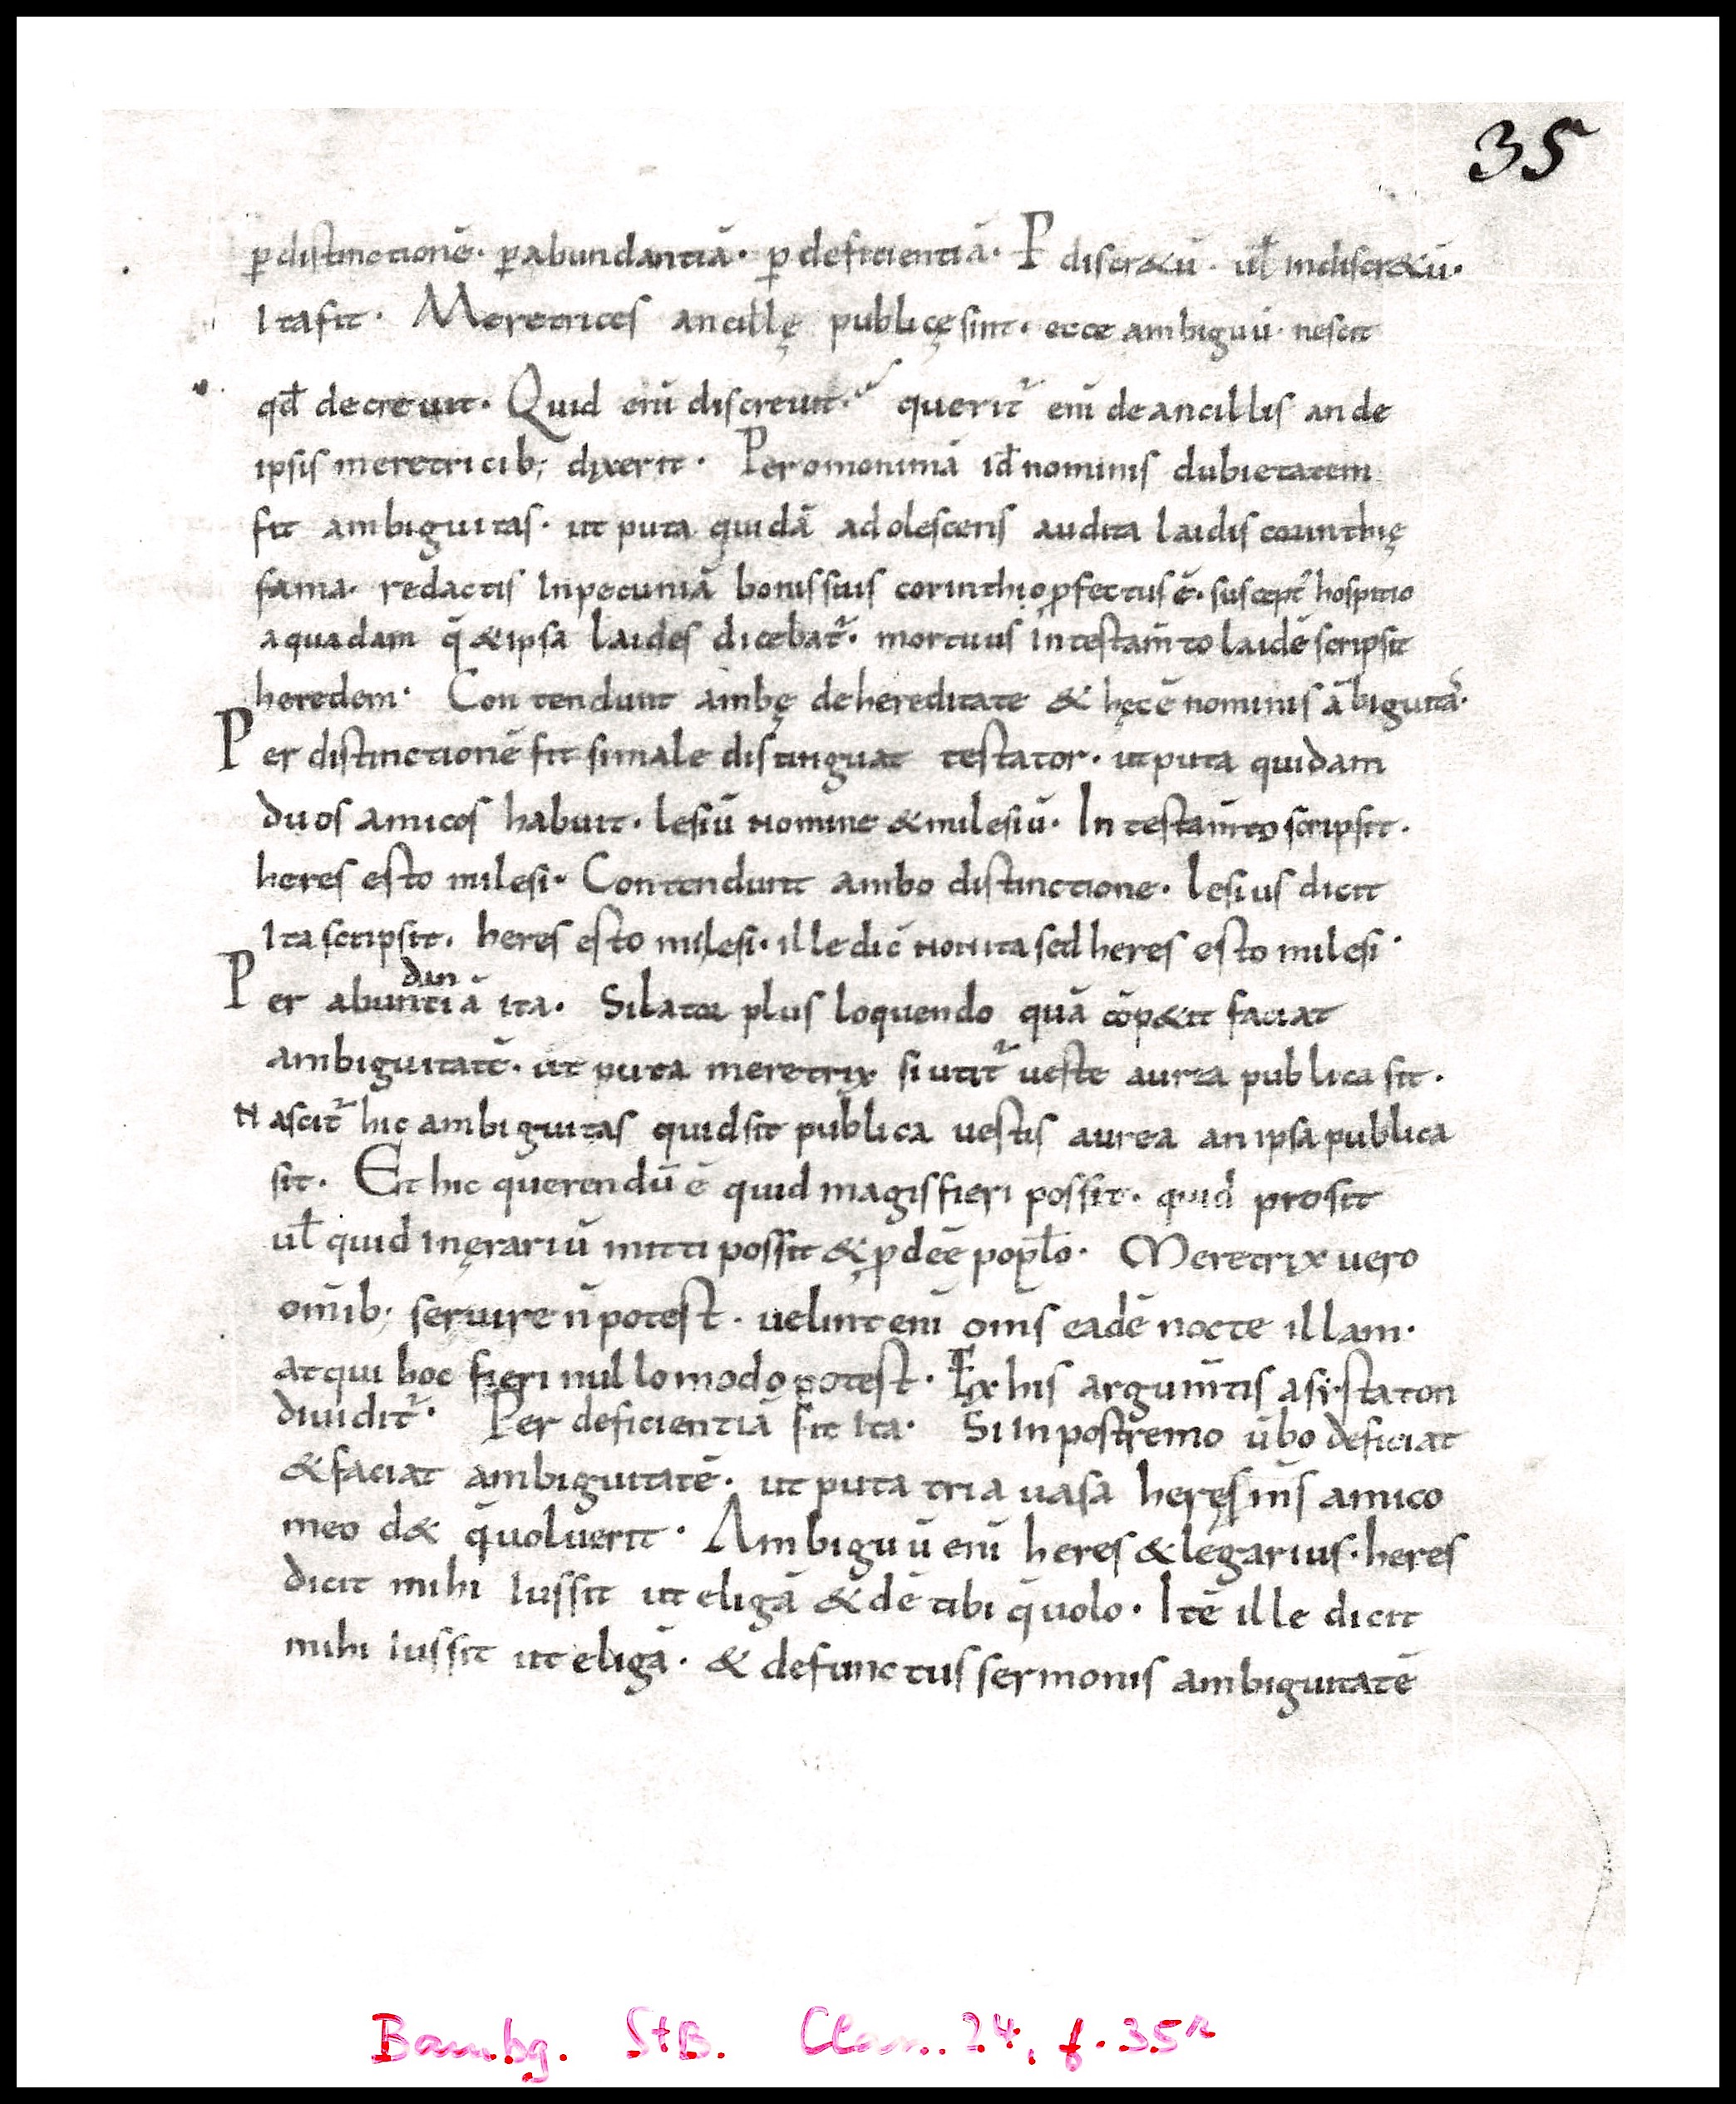 35r
ꝑ distinctionē· ꝑ abundantiā· ꝑ deficientiā· P discr&ū· uł indiscr&ū·
Ita fit· Meretrices ancillę publicę sint· ecce ambiguū· nescit
qđ decreuit· Quid eni̅ discreuit· querit᷑ eni̅ de ancillis an de
ipsis meretricib; dixerit· Per omonimā id̄ nominis dubietatem
fit ambiguitas· ut puta quidā adolescens audita laidis corinthię
fama· redactis In pecuniā bonis suis corinthio ꝓfectus ē· suscept᷑ hospitio
a quadam q̄ & ipsa laides dicebat᷑· mortuus In testam̄to laidē scripsit
heredem· Contendunt ambę de hereditate & hęc ē nominis ābiguita᷑·
Per distinctionē fit si male distinguat testator· ut puta quidam
duos amicos habuit· lesiū nomine & milesiū· In testam̄to scripsit·
heres esto milesi· Contendunt ambo distinctione· lesius dicit
Ita scripsit· heres esto milesi· ille dic̄ non ita sed heres esto milesi·
dan
Per abuntiā ita· Si lator plus loquendo quā cōp&it faciat
ambiguitatē· ut puta meretrix si utit᷑ ueste aurea publica sit·
Nascit᷑ hic ambiguitas quid sit publica uestis aurea an ipsa publica
sit· Et hic querendū ē quid magis fieri possit· quid prosit
uł quid in ęrariū mitti possit & ꝓdeē popło· Meretrix uero
om̄ib; seruire n̄ potest· uelint eni̅ om̄s eadē nocte illam·
atqui hoc fieri nullo modo potest· Ex his argum̄tis asystaton
diuidit᷑· Per deficientiā fit Ita· Si In postremo ūbo deficiat
& faciat ambiguitatē· ut puta tria uasa heres m̄s amico
meo d& q̄ uoluerit· Ambiguū eni̅ heres & legarius· heres
dicit mihi Iussit ut eligā & dē tibi q̄ uolo· Itē ille dicit
mihi iussit ut eligā· & defunctus sermonis ambiguitatē
Bambg. StB. Class. 24, f. 35r